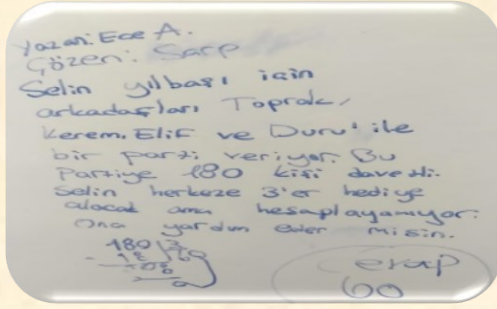 Yazan: Ece A.
Çözen: Sarp
Selin yılbaşı için
arkadaşları Toprak,
Kerem, Elif ve Duru' ile
bir parti veriyor. Bu
Partiye 180 kişi davetli.
Selin herkeze 3'er hediye
alacak ama hesaplayamıyor.
Ona yardım eder misin.
180 3
18 60
00
0
cevap
60